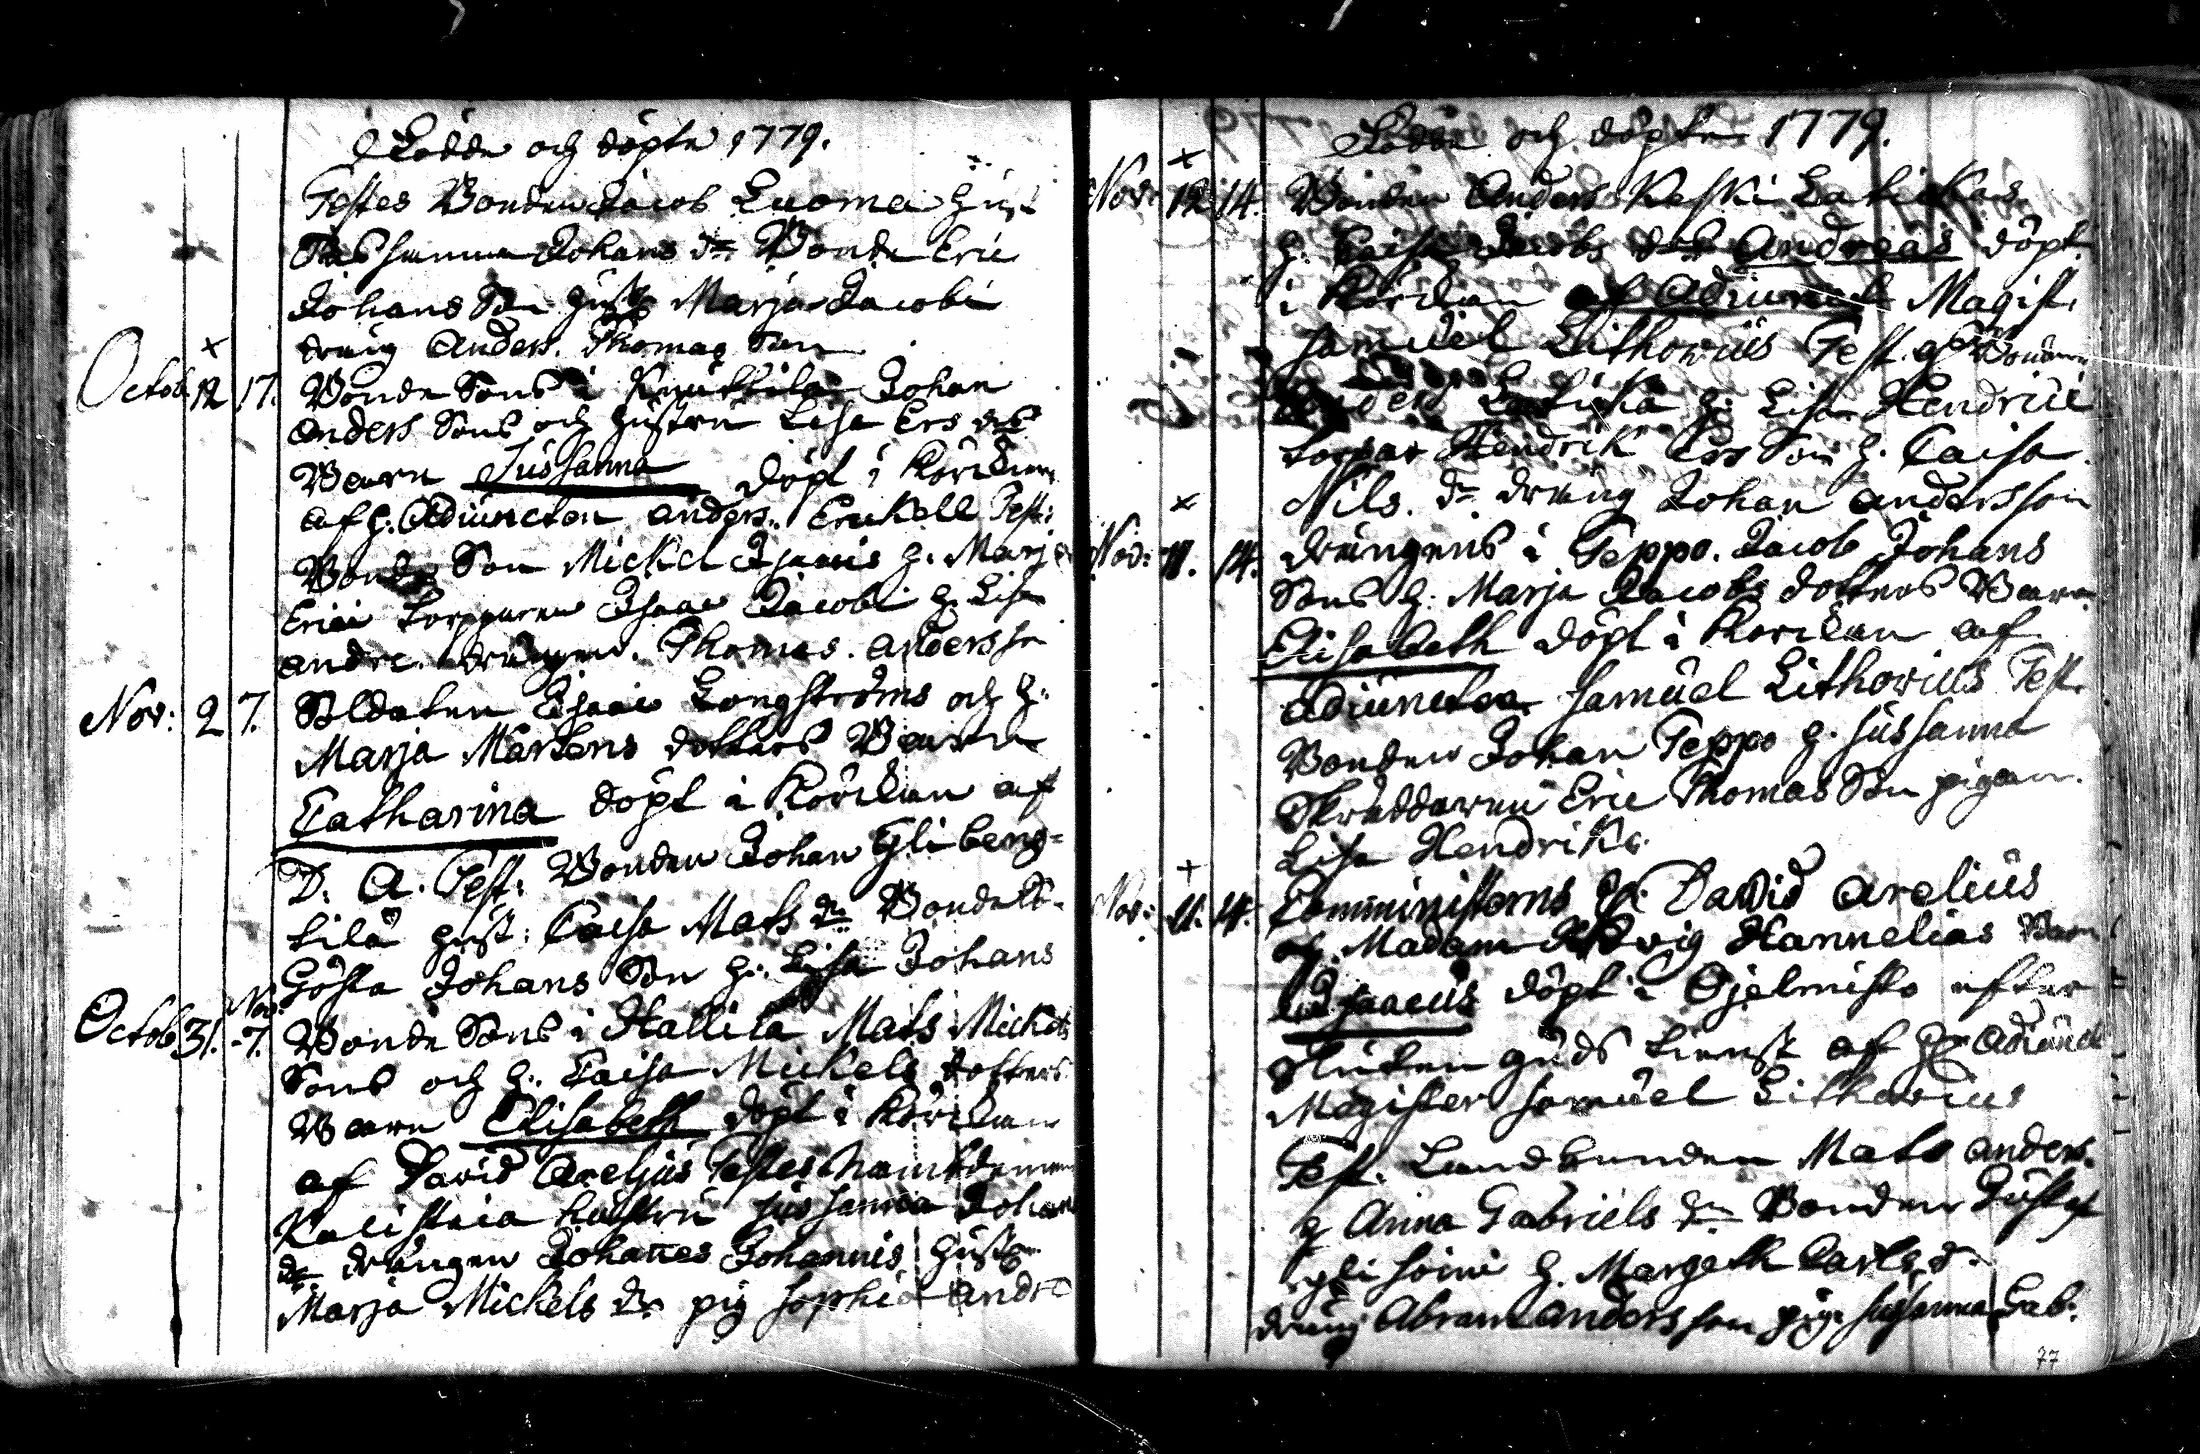 Födde och döpte 1779.
Testes Bonden Jacob Luoma hust
Sussanna Johans dr Bonde Eric
Johans Son hust Marja Jacobi
dräng Anders Thomas Son
Octob 12 17. Bonde Sons i Knuttila Johan
Anders Sons och hustru Lisa Ers drs
Barn Sussanna döpt i Kÿrckan
af h. Adiuncten Anders Erickell Test:
Bonde Son Mickel Isaacis h. Marja
Erici torpparen Isaac Jacobi h. Lisa
Andre. drängen Thomas Andersson
Nov: 2 7. Soldaten Isaac Longströms och h:
Marja Mårtens dotters Barn
Catharina döpt i Kÿrckan af
D. A. Test. Bonden Johan Yli beng=
tilä hust: Caisa Mats dr Bonde
Gösta Johans Son h. Lisa Johans
Octob 31. Nov. 7. Bonde Sons i Hallila Mats Mickels
Sons och h. Caisa Mickels dotters
Barn Elisabeth döpt i Kÿrckan
af David Areljus Testes
hustru Sussanna Johans
dr drängen Johannes Johannis hustr
Marja Mickels dr pig Sophia Andre
Födde och döpte 1779.
Nov: 12 14. Bonden Anders Keski
h. Caisa Jacobs drs Andreas döpt
i Kÿrckan af Adiunct Magist.
Samuel Lithovius Test. Bonden
h. Lisa Hendrici
torpar Hendrik Ers Son h. Caisa
Nils. dr dräng Johan Andersson
Nov: 11. 14. drängens i Teppo. Jacob Johans
Sons h. Marja Jacobs dotters Barn
Elisabeth döpt i Kÿrckan af
Adiuncten Samuel Lithovius Test.
Bonden Johan Teppo h. Sussanna
Skräddaren Eric Thomas Son pigan
Lisa Hendriks.
Nov: 11. 14. Comministerns H: David Arelius
och Madam Hedvig Hannelias Barn
Isaacus döpt i efter
sluten guds tienst af Hr Adiunct
Magister Samuel Lithovius
Test. Landbonden Mats Anders.
h Anna Gabriels dr Bonden Gustaf
Yli Soini h. Margeth Carls d.
dräng Abram Andersson pig. Sussanna Gab.
77